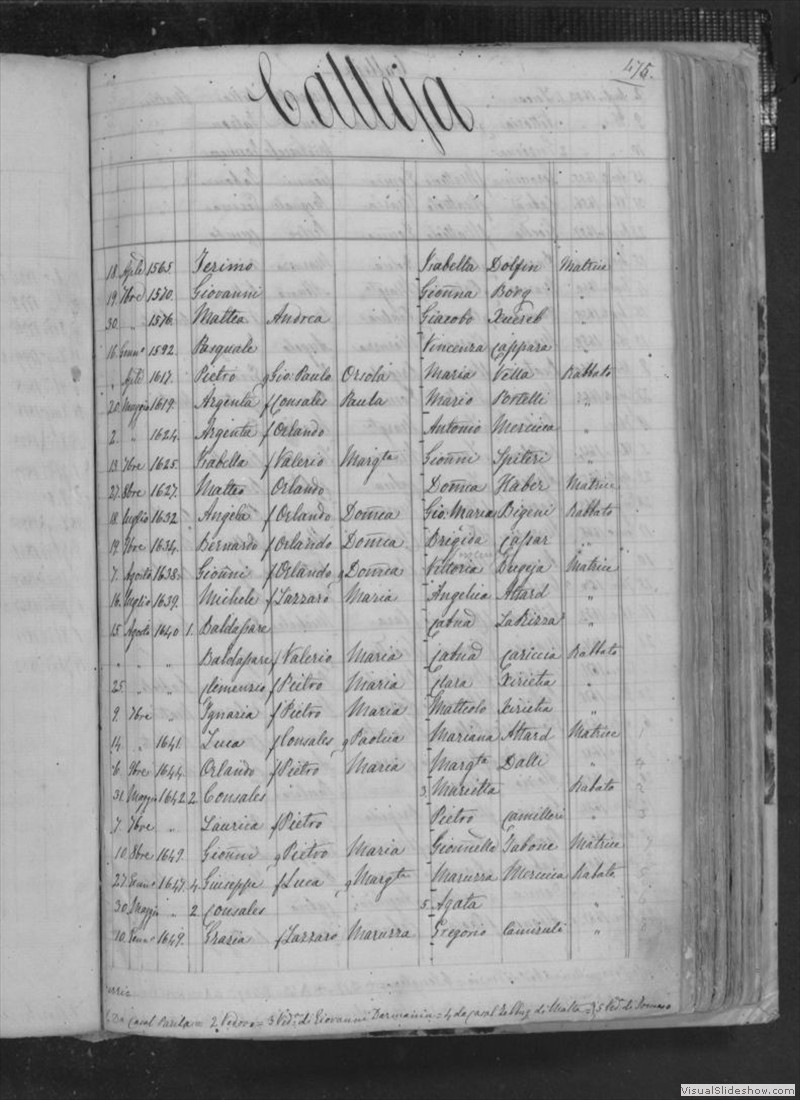 475.
Calleja
18 Aple 1565 Ierimo Isabella Dolfin Matrice
19 7bre 1570 Giovanni Gioñna Borg "
30 " 1576 Mattea Andrea Giacobo Xuereb "
16 Genn° 1592 Pasquale Vincenza Cappara
" Aple 1617 Pietro q Gio: Paulo Orsola Maria Vella Rabbato
20 Maggio 1619 Argenta f Consales Paula Mario Portelli "
2 " 1624 Argenta f Orlando Antonio Mercieca "
19 7bre 1625 Isabella f Valerio Margta Gioñni Spiteri
27 8bre 1627 Matteo Orlando Doñna Haber Matrice
18 luglio 1632 Angela f Orlando Domca Gio: Maria Bigeni Rabbato
19 7bre 1634 Bernardo f Orlando Domca Brigida Cassar "
7 Agosto 1638 Gioñni f Orlando q Domca Vittoria Bugeja Matrice
16 luglio 1639 Michele f Lazzaro Maria Angelica Attard "
15 Agosto 1640 1 Baldassare Catnd LaRizza "
" " " Baldassare f Valerio Maria Catnd Cariccia Rabbato
25 " Clemenzio f Pietro Maria Clara Xiricha "
9 7bre Ignazia f Pietro Maria Matteolo Xiricha "
14 " 1641 Luca f Consales q Paolica Mariana Attard Matrice
6 9bre 1644 Orlando f Pietro Maria Margta Dalli "
31 Maggio 1642 2 Consales 3 Marietta Rabato
7 7bre " Laurica f Pietro Pietro Camilleri "
10 8bre 1649 Gioñni q Pietro Maria Gionnella Tabone Matrice
27 Genn° 1647 4 Giuseppe f Luca q Margta Maruzza Mercieca Rabato
30 Maggio " 2 Consales 5 Agata "
10 Genn° 1649 Grazia f Lazzaro Maruzza Gregorio Camenzuli "
Casal = 2 Vedovo = 3 Vedª di Giovanni = 4 da Casal Zebbug di Malta = 5 Vedª di
VisualSlideshow.com